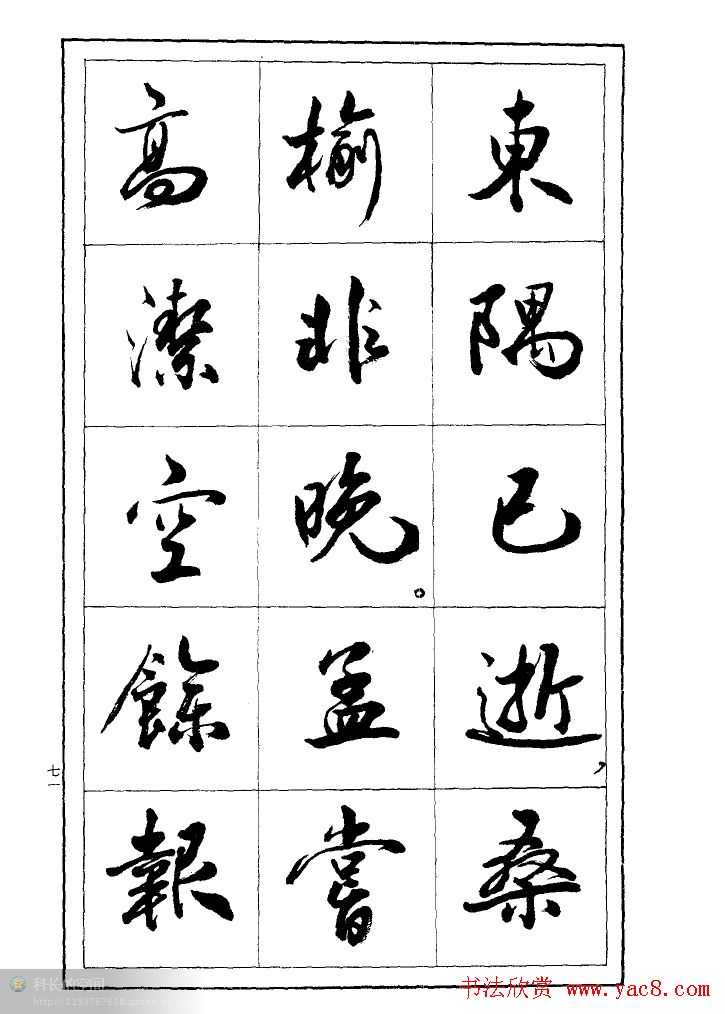 東隅已逝,桑
榆非晚。孟嘗
高潔空餘報
七一
科长的空间
http://1193767618.qzone.qq.com
书法欣赏 www.yac8.com